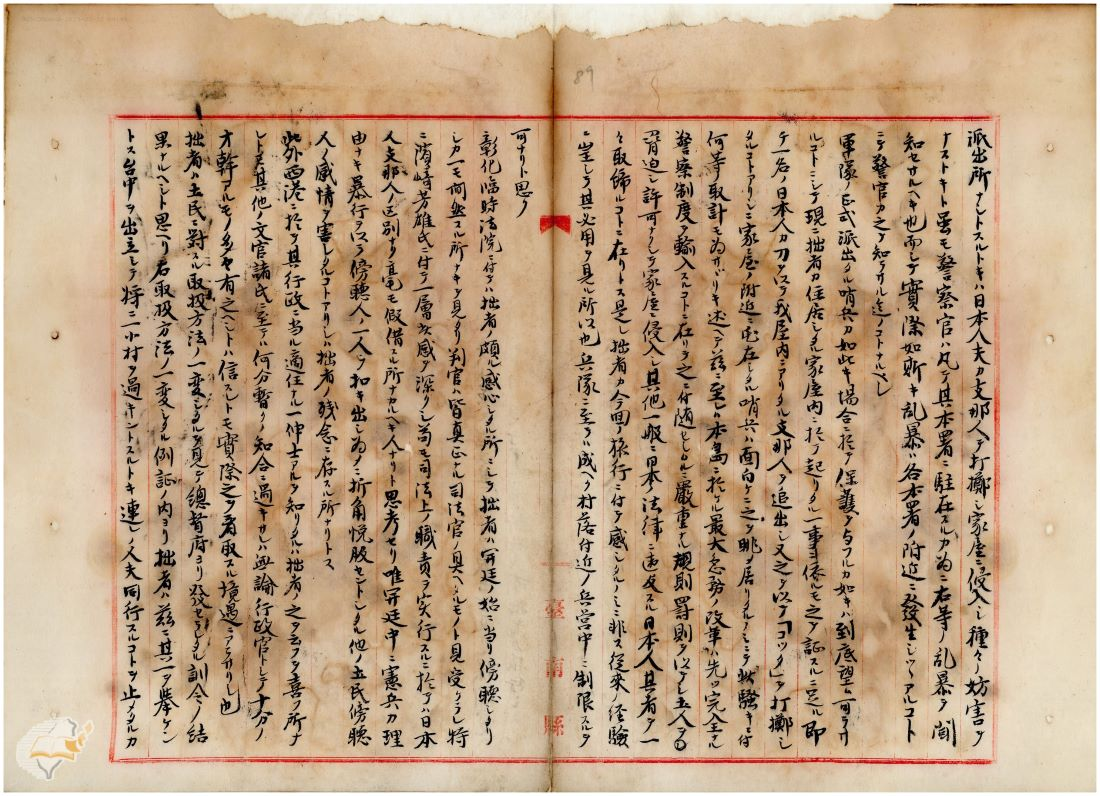 派出所アラントスルトキハ日本人人夫カ支那人ヲ打擲シ家屋ニ侵入シ種々ノ妨害ヲ
ナストキト雖モ警察官ハ凡テ其本署ニ駐在スルカ為ニ右等ノ乱暴ヲ聞
知セサルヘキ也而シテ實際如斯キ乱暴ハ各本署ノ附近ニ發生シツヽアルコト
ニテ警官カ之ヲ知ラサル迄ノコトナルヘシ
軍隊ノ正式派出タル哨兵カ如此キ場合ニ於テ保護ヲ与フルカ如キハ到底望ム可ラサ
ルコトニシテ現ニ拙者カ住居シタル家屋内ニ於テ起リタル一事ニ依ルモ之ヲ証スルニ足ル即
チ一名ノ日本人カ刀ヲ以テ我屋内ニアリタル支那人ヲ追出シ又之ヲ以テ「コック」ヲ打擲シ
タルコトアリシニ家屋ノ附近ニ在リタル哨兵ハ面白ケニ之ヲ眺メ居リタルノミニテ此騒キニ付
何等ノ取計モ為サヾリキ述テ茲ニ至レハ本島ニ於ケル最大急務ノ改革ハ先ツ完全ナル
警察制度ヲ輸入スルコトニ在リ之ニ付随シタル嚴重ナル規則罰則ヲ以テシ土人ヲ
脅迫シ許可ナクシテ家屋ニ侵入シ其他一般ニ日本ノ法律ニ違反スル日本人其者ヲ一
々取締ルコトニ在リトス是レ拙者カ今回ノ旅行ニ付テ感シタルノミニ非ス従来ノ経驗
ニ豈シテ其必用ヲ見ル所以也兵隊ニ至テハ成ヘク村落付近ノ兵営中ニ制限スルヲ
可ナリト思フ
彰化臨時法院ニ付テハ拙者頗ル感心シタル所ニシテ拙者ハ開廷ノ始ニ当リ傍聴シタリ
シカ一モ間然スル所ナキヲ見タリ判官ハ皆真正ナル司法官ノ具ヘタルモノト見受ケラレ特
ニ濱崎芳雄氏ニ付テ一層其感ヲ深クシ苟モ司法上ノ職責ヲ実行スルニ於テハ日本
人支那人ノ区別ナク毫モ假借スル所ナカルヘキ人ナリト思考セリ唯開廷中ニ憲兵カ理
由ナキ暴行ヲ以テ傍聴人ノ一人ヲ扣キ出シ為メニ折角悦服セントシタル他ノ土民傍聴
人ノ感情ヲ害シタルコトアリシハ拙者ノ残念ニ存スル所ナリトス
此外西港ニ於テ其行政ニ当ル適任ナル一紳士アルヲ知リタルハ拙者ノ之ヲ云フヲ喜フ所ナ
レトモ其他ノ文官諸氏ニ至テハ何分暫クノ知合ニ過キサレハ無論行政官トシテ十分ノ
才幹アルモノ多々有之ヘシトハ信スレトモ實際之ヲ看取スル境遇ニアラサリシ也
拙者ハ土民ニ對スル取扱方法ノ一変シタルヲ見テ總督府ヨリ發セラレタル訓令ノ結
果ナルヘシト思ヘリ右取扱方法ノ一変シタル例証ノ内ヨリ拙者ハ茲ニ其一ヲ擧ケン
トス台中ヲ出立シテ将ニ一小村ヲ過キントスルトキ連レノ人夫同行スルコトヲ止メタルカ
臺南縣
89